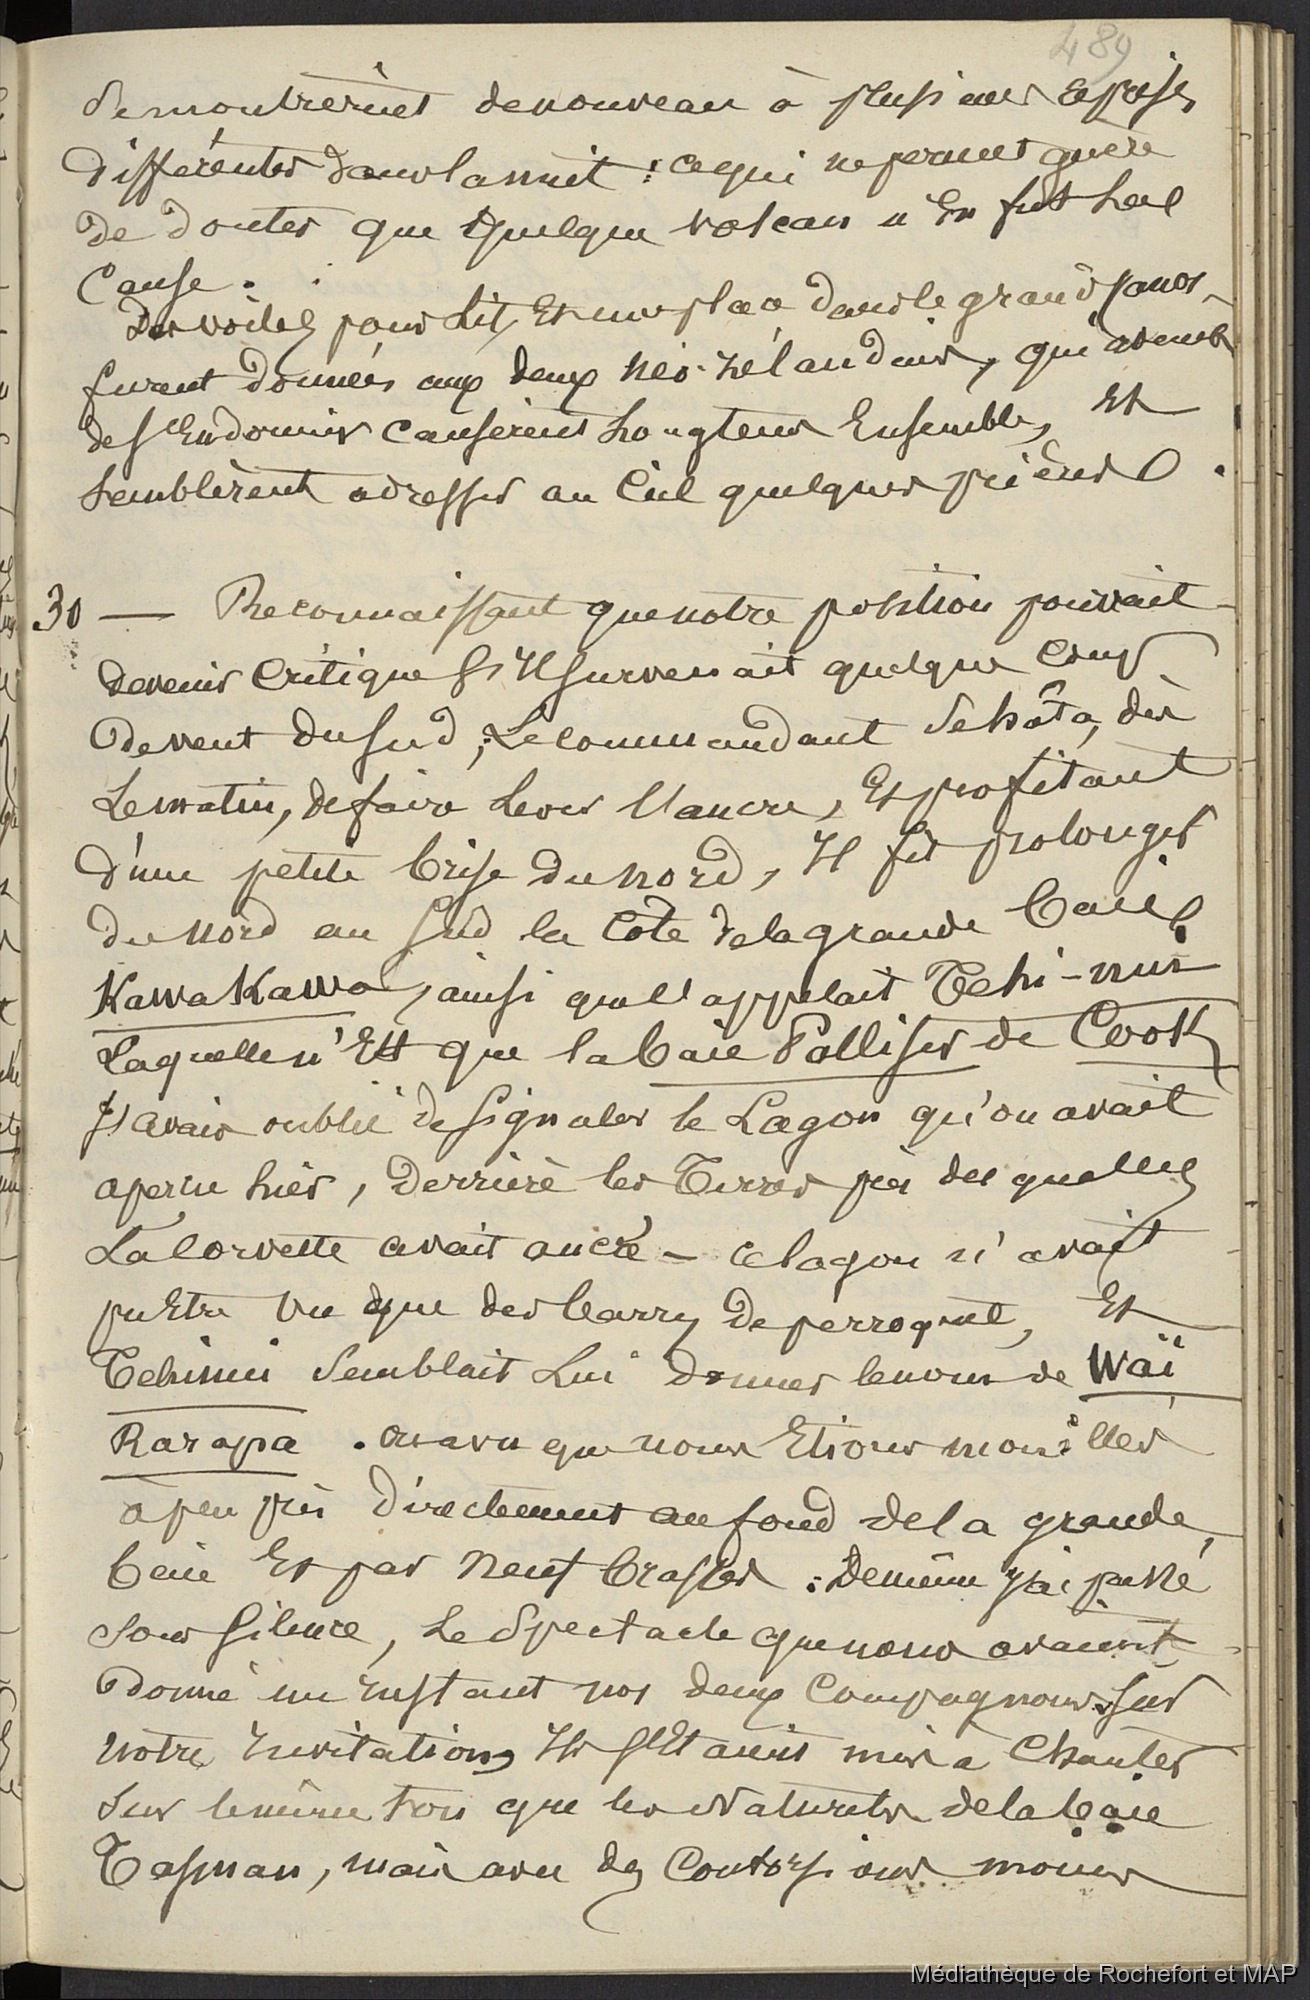 489
Se montrèrent de nouveau à plusieurs reprises
différentes dans la nuit : ce qui ne permet guère
de douter que quelque volcan n'en fut la
Cause.
Des voiles pour lit, Et une place dans le grand panos
furent données aux deux Néo-zélandais, qui avant
de s'Endormir Causèrent longtems Ensemble, Et
semblèrent adresser au Ciel quelques prières.
30 — Reconnaissant que notre position pouvait
devenir Critique S'Il survenait quelque Coup
de vent du Sud, Le commandant Se hâta, dès
Le matin, de faire lever l'ancre, Et profitant
d'une petite brise du nord, Il fit prolonger
du nord au Sud la Côte de la grande baie
KawaKawa, ainsi que l'appelait Tehi-nui
Laquelle n'Est que la baie Palliser de Cook
J'avais oublié de signaler le Lagon qu'on avait
aperçu hier, Derrière les Terres près des quelles
La Corvette avait ancré — Ce lagon n'avait
pu Etre vu que des barres de perroquet, Et
Tehinui Semblait Lui donner le nom de Waï
Rarapa. On a vu que nous Etions mouillés
à peu près directement au fond de la grande
baie Et par Neuf brasses : De même j'ai passé
Sous Silence, Le Spectacle que nous avaient
donné un instant nos deux Compagnons. Sur
notre Invitation, Ils s'Etaient mis à Chanter
Sur le même ton que les Naturels de la baie
Tasman, mais avec des Contorsions moins
Médiathèque de Rochefort et MAP